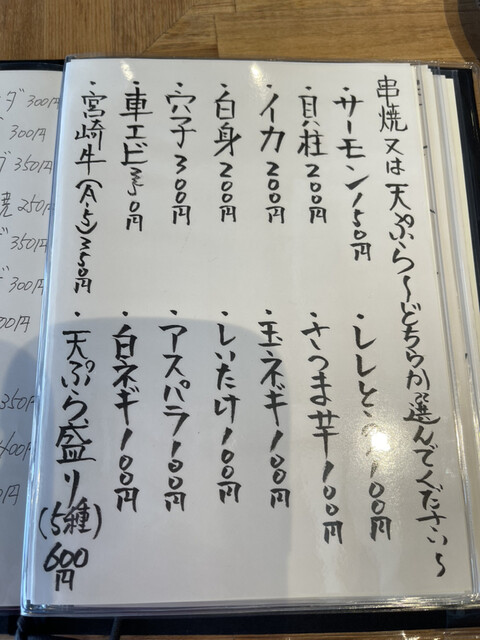 串焼又は天ぷら〜どちらか選んでください〜
・サーモン150円
・貝柱200円
・イカ200円
・白身200円
・穴子300円
・車エビ350円
・宮崎牛(A5)350円
・ししとう100円
・さつま芋100円
・玉ネギ100円
・しいたけ100円
・アスパラ100円
・白ネギ100円
・天ぷら盛り(5種)600円
ダ 300円
300円
350円
焼 250円
350円
300円
00円
350円
400円
0円